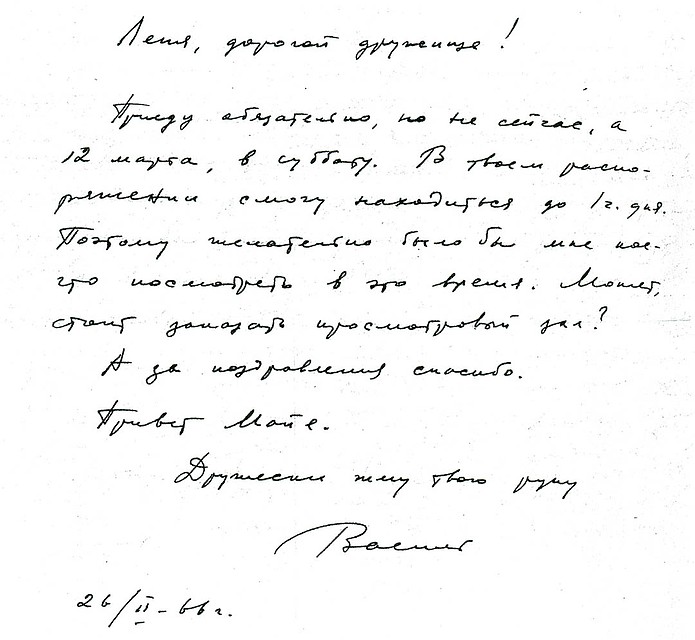 Леня, дорогой дружище!
Приеду обязательно, но не сейчас, а
12 марта, в субботу. В твоем распо-
ряжении смогу находиться до 1 г. дня.
Поэтому желательно было бы мне кое-
что посмотреть в это время. Может,
стоит заказать просмотровый зал?
А за поздравления спасибо.
Привет Майе.
Дружески жму твою руку
26/II-66 г.